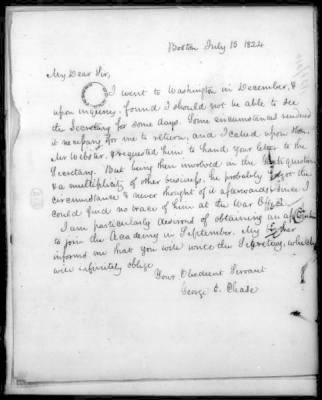 Boston July 15 1824
My Dear Sir,
I went to Washington in December, &
upon inquiry, found I should not be able to see
the Secretary for some days. Some circumstances rendered
it necessary for me to return, and I called upon Hon.
Mr Webster, & requested him to hand your letter to the
Secretary. But being then involved in the Greek question,
& a multiplicity of other business, he probably forgot the
circumstance & never thought of it afterwards since I
could find no trace of him at the War Office.
I am particularly desirous of obtaining an
to join the Academy in September. My
informs me that you will write the Secretary, which
will infinitely oblige
Your Obedient Servant
George E. Chase